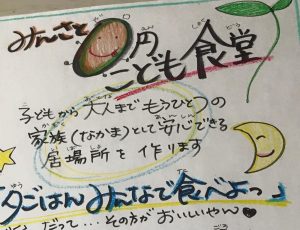 みんさと0円
こども食堂
子どもから大人までもうひとつの
家族(なかま)として安心できる
居場所を作ります
夕ごはんみんなで食べよっ」
だって...その方がおいしいやん♥